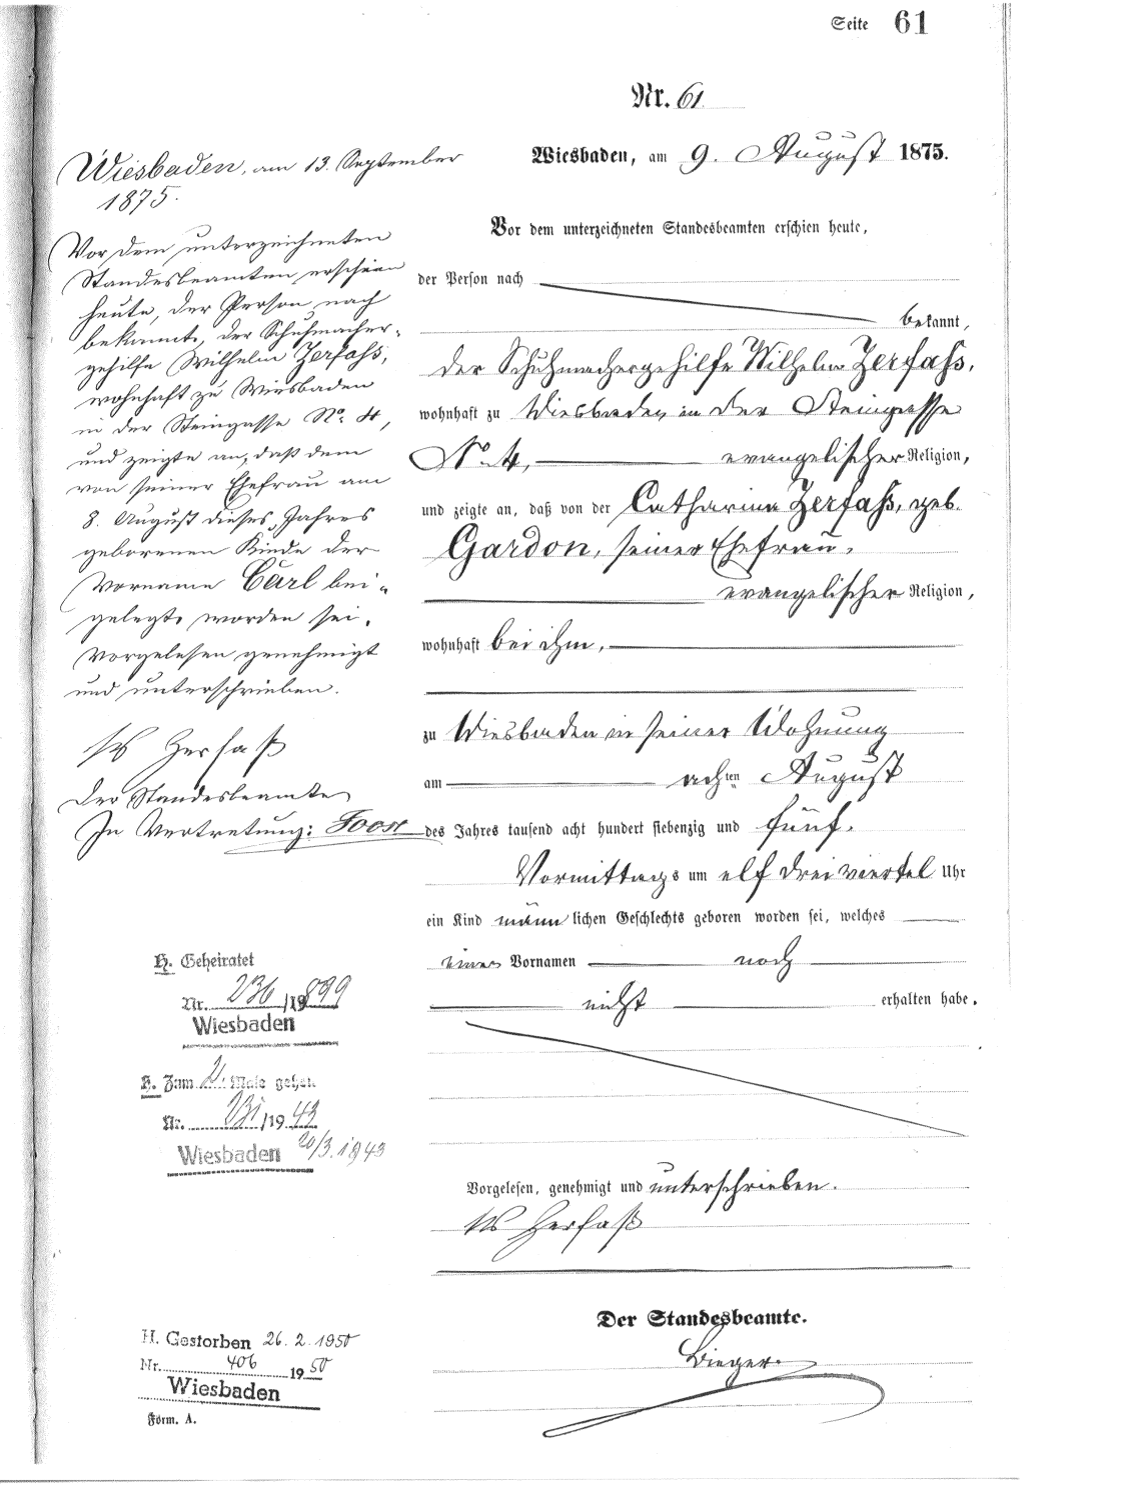 Seite 61
Nr. 61
Wiesbaden, am 9. August 1875.
Vor dem unterzeichneten Standesbeamten erschien heute,
der Person nach
bekannt,
der Schuhmachergehilfe Wilhelm Zerfass,
wohnhaft zu Wiesbaden in der Steingasse
No. 4, evangelischer Religion,
und zeigte an, daß von der Catharina Zerfass, geb.
Gardon, seiner Ehefrau,
evangelischer Religion,
wohnhaft bei ihm,
zu Wiesbaden in seiner Wohnung
am achten August
des Jahres tausend acht hundert siebenzig und fünf,
Vormittags um elf drei viertel Uhr
ein Kind männlichen Geschlechts geboren worden sei, welches
einen Vornamen noch
nicht erhalten habe.
Vorgelesen, genehmigt und unterschrieben.
Zerfaß
Der Standesbeamte.
Bieger.
Wiesbaden, am 13. September
1875.
Vor dem unterzeichneten
Standesbeamten erschien
heute, der Person nach
bekannt, der Schuhmacher-
gehilfe Wilhelm Zerfass,
wohnhaft zu Wiesbaden
in der Steingasse No. 4,
und zeigte an, daß dem
von seiner Ehefrau am
8. August dieses Jahres
geborenen Kinde der
Vorname Carl bei-
gelegt worden sei.
Vorgelesen genehmigt
und unterschrieben.
Zerfaß
Der Standesbeamte
In Vertretung: Joost
H. Geheiratet
Nr. 236/1899
Wiesbaden
H. Zum 2. Male geheir.
Nr. 231/1943
Wiesbaden 20/3.1943
H. Gestorben 26.2.1950
Nr. 406 1950
Wiesbaden
Form. A.